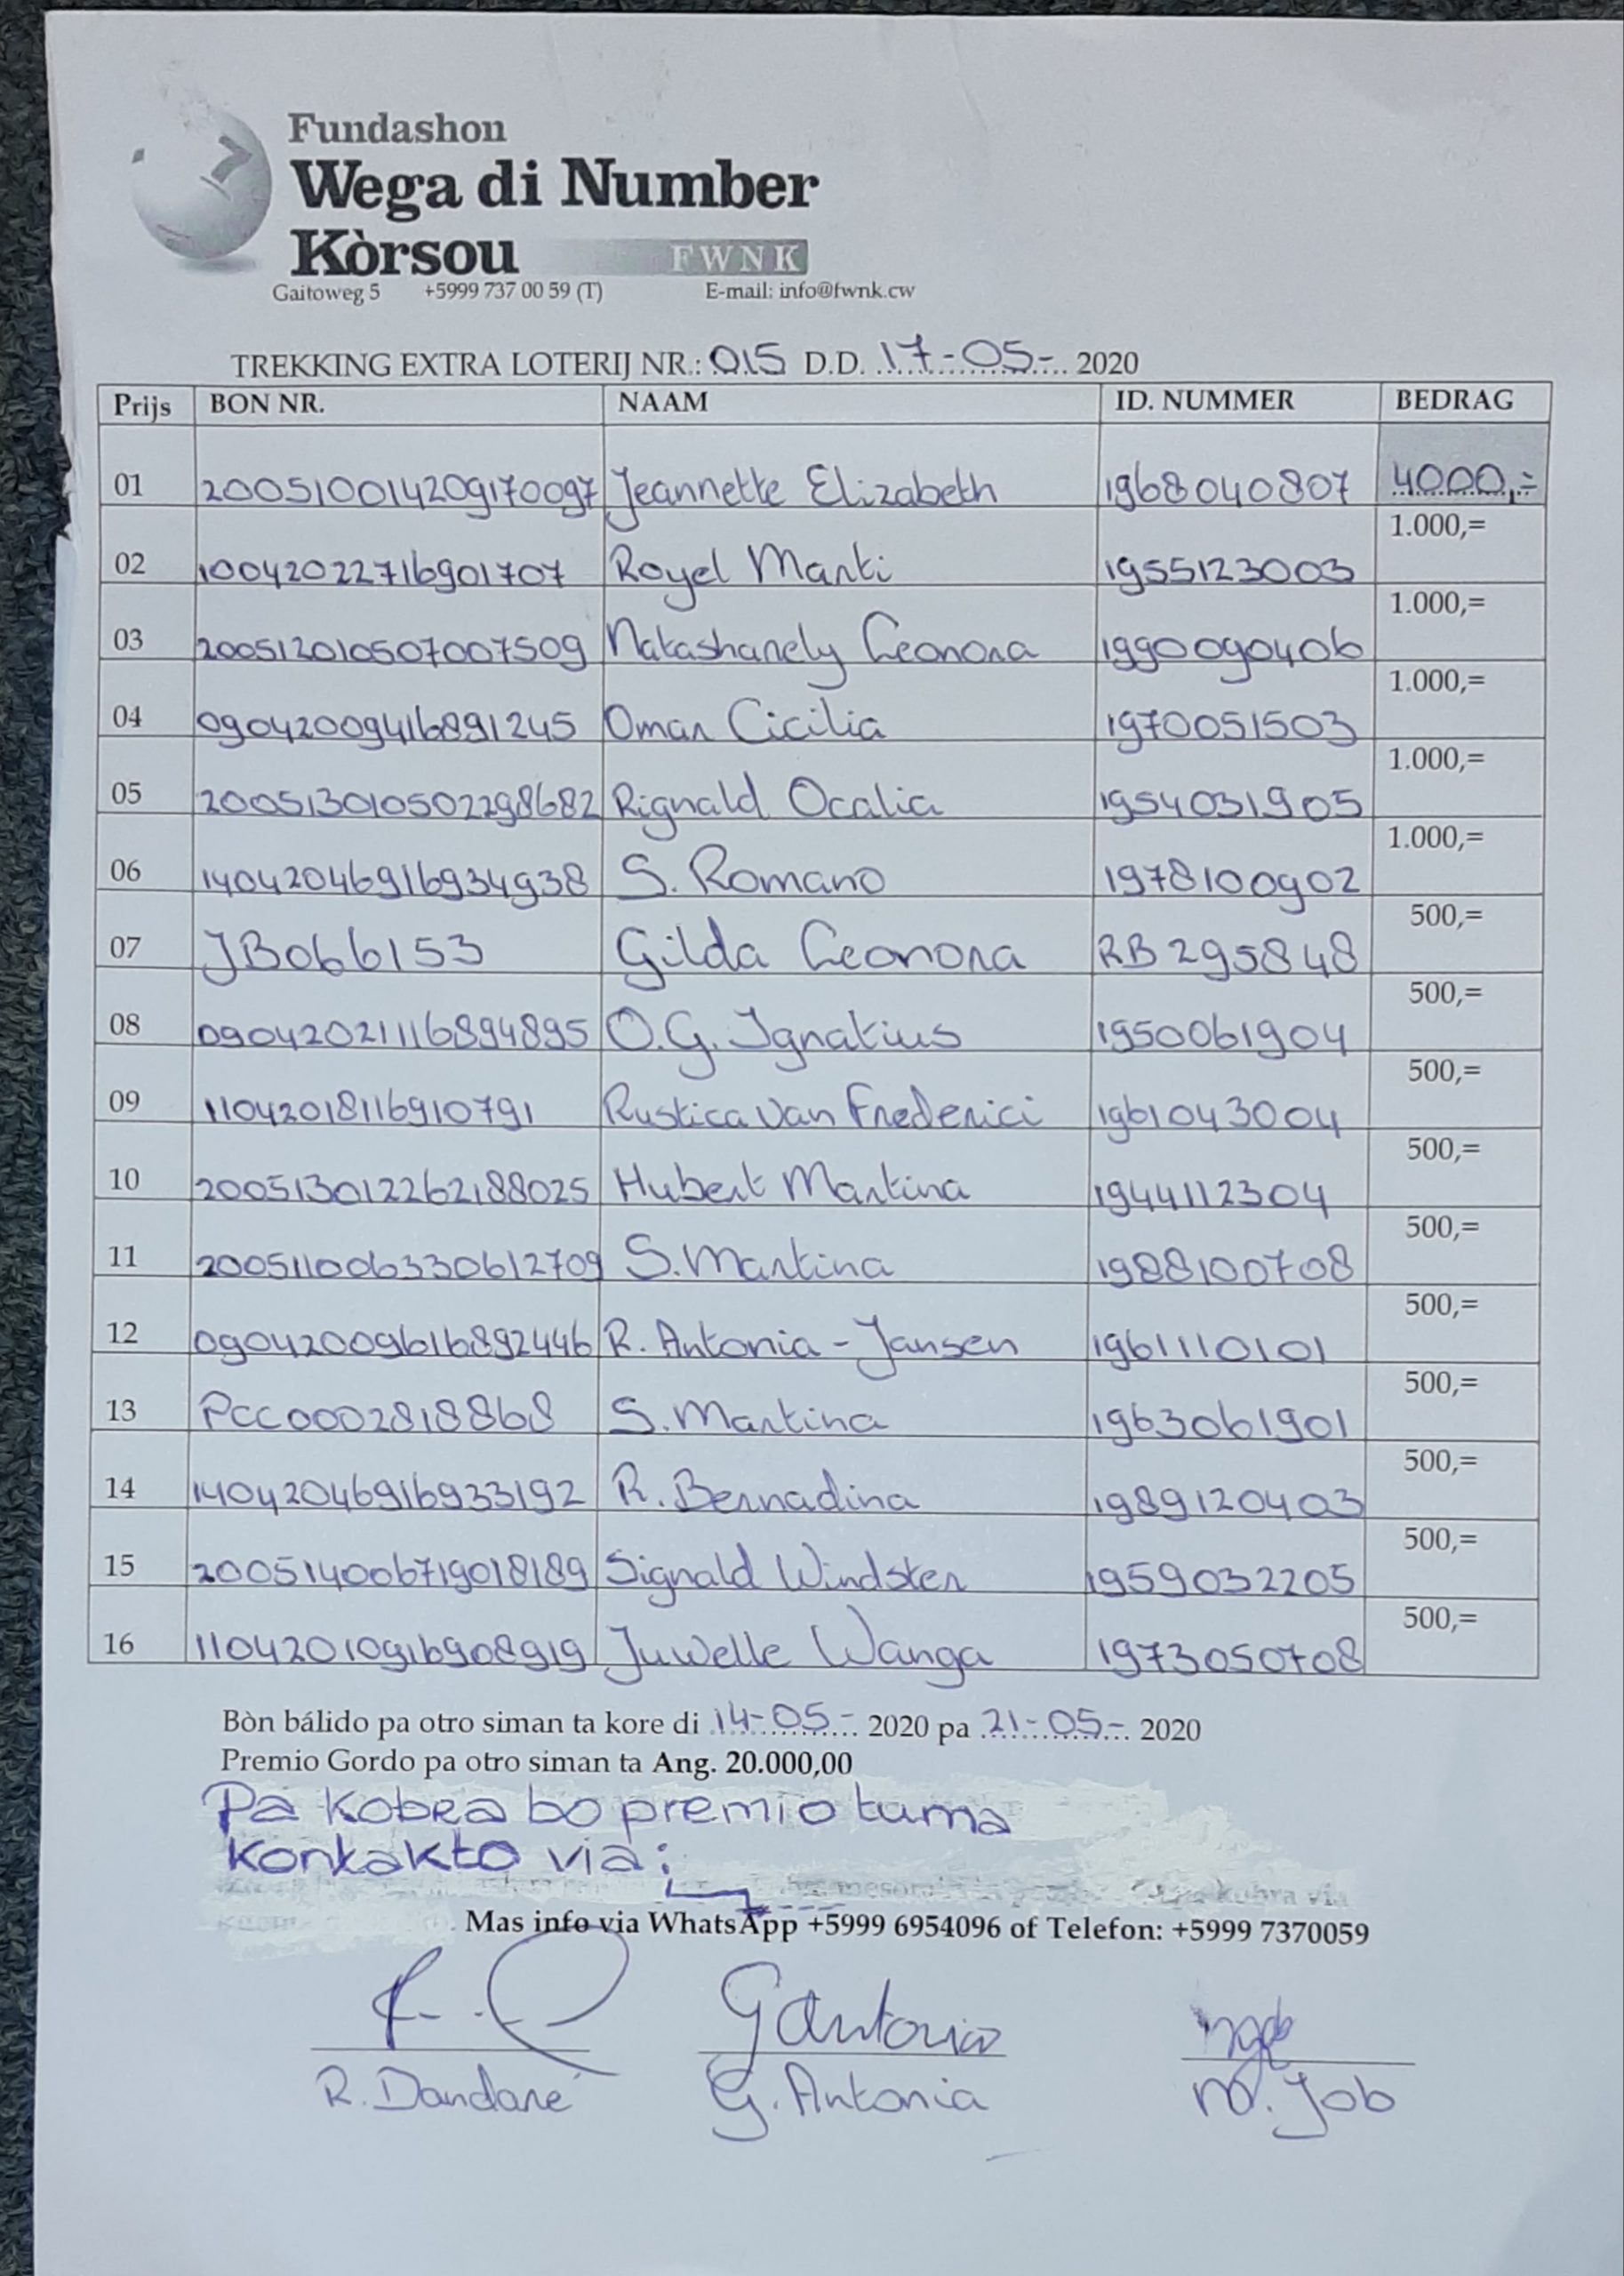 Fundashon
Wega di Number
Kòrsou FWNK
Gaitoweg 5 +5999 737 00 59 (T) E-mail: info@fwnk.cw
TREKKING EXTRA LOTERIJ NR.: 015 D.D. 17-05-. 2020
Prijs BON NR. NAAM ID. NUMMER BEDRAG
01 200510014209170097 Jeannette Elizabeth 1968040807 4000,=
02 10042022716901707 Royel Marti 1955123003 1.000,=
03 200512010507007509 Natashanely Leonora 1990090406 1.000,=
04 09042009416891245 Omar Cicilia 1970051503 1.000,=
05 200513010502298682 Rignald Ocalia 1954031905 1.000,=
06 14042046916934938 S. Romano 1978100902 1.000,=
07 JB066153 Gilda Leonora RB295848 500,=
08 09042021116894895 O.G. Ignatius 1950061904 500,=
09 11042018116910791 Rustica van Frederici 1961043004 500,=
10 200513012262188025 Hubert Martina 1944112304 500,=
11 200511006330612709 S. Martina 1988100708 500,=
12 09042009616892446 R. Antonia-Jansen 1961110101 500,=
13 PCC0002818868 S. Martina 1963061901 500,=
14 14042046916933192 R. Bernadina 1989120403 500,=
15 200514006719018189 Signald Windster 1959032205 500,=
16 11042010916908919 Juwelle Wanga 1973050708 500,=
Bòn bálido pa otro siman ta kore di 14-05-. 2020 pa 21-05-. 2020
Premio Gordo pa otro siman ta Ang. 20.000,00
Pa Kobra bo premio tuma
Kontakto via:
kobra via
Mas info via WhatsApp +5999 6954096 of Telefon: +5999 7370059
GAntonia
R. Dandaré G. Antonia M. Job